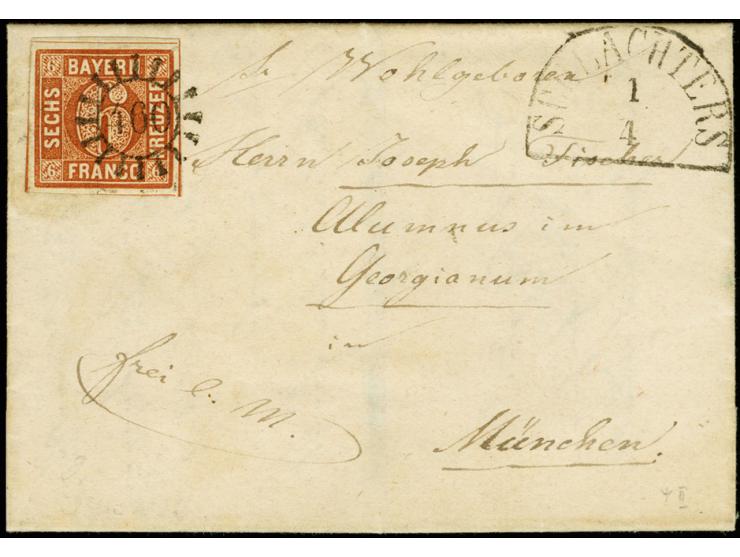 BAYERN
SECHS
KREUZER
FRANCO
6
6
6
6
Sr. Wohlgeboren
SCHLACHTERS
1
4
Herrn Joseph Fischer
Alumnus im
Georgianum
in
München.
frei e. M.